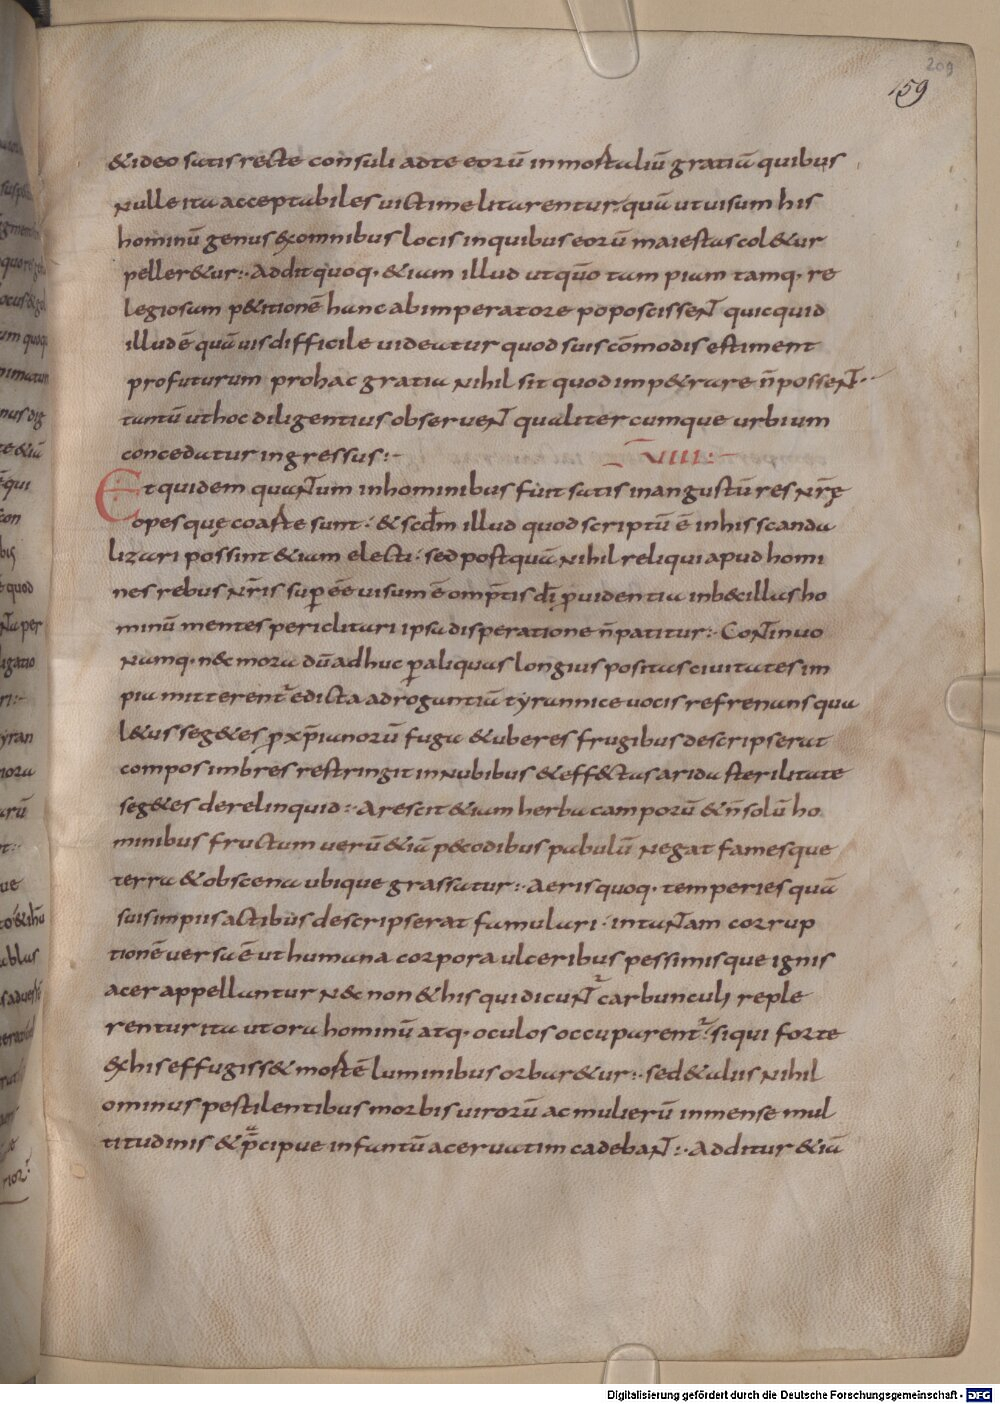 209
159
& ideo satis recte consuli ad te eorū inmortaliū gratiā quibus
nulle ita acceptabiles uictime litarentur, quā ut uisum his
hominū genus ex omnibus locis in quibus eorū maiestas col&ur
peller&ur:· Addit quoq· &iam illud ut quo tam pium tamq· re
legiosum p&itionē hunc ab imperatore poposcissent quicquid
illud ē quāuis difficile uideatur quod suis cōmodis estiment
profuturum pro hac gratia nihil sit quod imp&rare n̄ possent··
tantū ut hoc diligentius obseruent qualitercumque urbium
concedatur ingressus:-
VIIII:
Et quidem quantum in hominibus fuit satis in angustū res nr̄ę
opesquę coartte sunt· & scdm illud quod scriptū ē in his scanda
lizari possint &iam electi· sed postquā nihil reliqui apud homi
nes rebus nr̄is sup ēē uisum ē omp̄tis dī puidentia inbecillas ho
minū mentes periclitari ipsa disperatione n̄ patitur:· Continuo
namq· nec mora dū adhuc p aliquas longius positas ciuitates im
pia mitterent̄ edicta ad roguntiā tyrannice uocis refrenans qua
l&us seg&es p xp̄ianorū fuga & uberes frugibus descripserat
compos imbres restringit in nubibus & effectas arida sterilitate
seg&es derelinquid:· Arescit &iam herba camporū & n̄ solū ho
minibus fructum uerū &iā pecodibus pabulū negat famesque
terra & obscena ubique grassatur:· Aeris quoq· temperies quā
suis impiis actibus descripserat famulari· in tantam corrup
tionē uersa ē ut humana corpora ulceribus pessimisque ignis
acer appellantur nec non & his qui dicunt̄ carbunculi reple
rentur ita ut ora hominū atq· oculos occuparent̄· si qui forte
ex his effugiss& mortē luminibus orbar&ur:· sed & aliis nihil
ominus pestilentibus morbis uirorū ac mulierū inmense mul
titudinis & p̄cipue infantū aceruatim cadebant:· Additur &iā
Digitalisierung gefördert durch die Deutsche Forschungsgemeinschaft - DFG